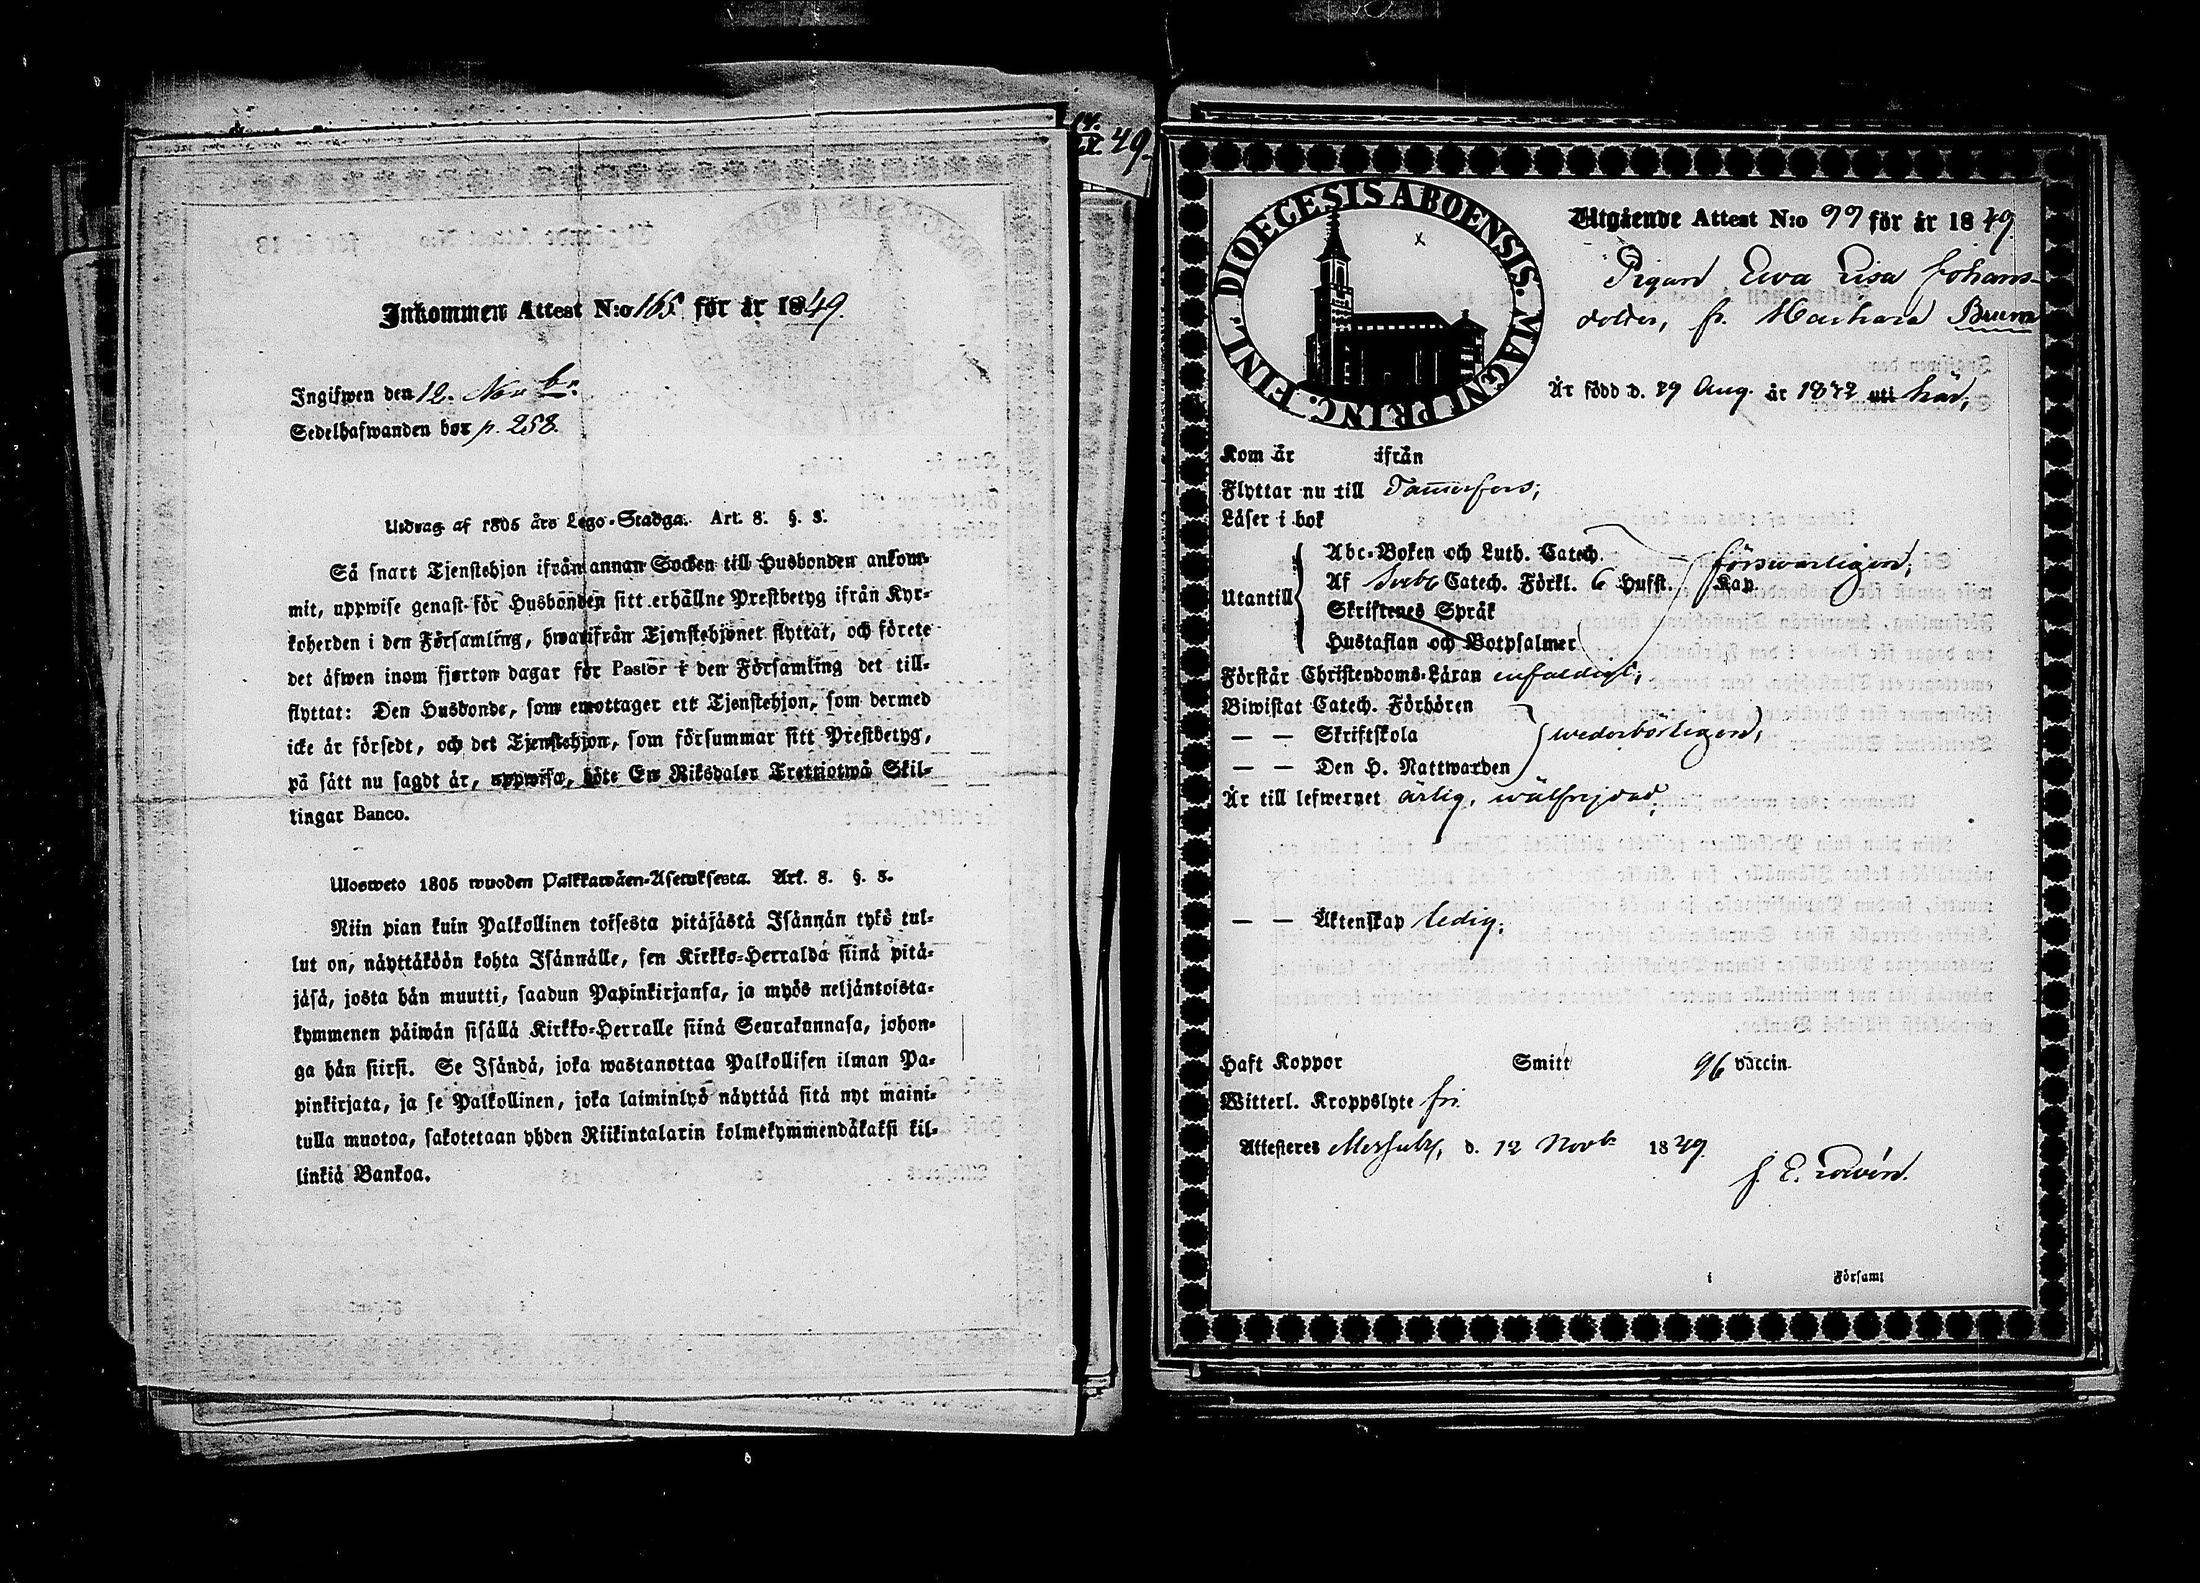 Inkommen Attest N:o 165 för år 1849.
Ingifwen den 12. Novbr.
Sedelhafwanden bor p. 258.
Utdrag af 1805 års Lego-Stadga. Art. 8. §. 3.
Så snart Tjenstehjon ifrån annan Socken till Husbonden ankom-
mit, uppwise genast för Husbonden sitt erhållne Prestbetyg ifrån Kyr-
koherden i den Församling, hwarifrån Tjenstehjonet flyttat, och förete
det äfwen inom fjorton dagar för Pastor i den Församling det till-
flyttat: Den Husbonde, som emottager ett Tjenstehjon, som dermed
icke är försedt, och det Tjenstehjon, som försummar sitt Prestbetyg,
på sätt nu sagdt är, uppwisa, böte En Riksdaler Trettiotwå Skil-
lingar Banco.
Ulosweto 1805 wuoden Palkkawäen-Asetuksesta. Art. 8. §. 3.
Niin pian kuin Palkollinen toisesta pitäjästä Isännän tykö tul-
lut on, näyttäköön kohta Isännälle, sen Kirkko-Herralda siinä pitä-
jäsä, josta hän muutti, saadun Papinkirjansa, ja myös neljäntoista-
kymmenen päiwän sisällä Kirkko-Herralle siinä Seurakunnasa, johon-
ga hän siirsi. Se Isändä, joka wastanottaa Palkollisen ilman Pa-
pinkirjata, ja se Palkollinen, joka laiminlyö näyttää sitä nyt maini-
tulla muotoa, sakotetaan yhden Riikintalarin kolmekymmendäkaksi kil-
linkiä Bankoa.
49.
DIOECESIS ABOENSIS. MAGNI PRINC. FINL.
Utgående Attest N:o 99 för år 1849
Pigan Ewa Lisa Johans-
dotter, fr. Markara Bruun
Är född d. 29 Aug. år 1822 uti här,
Kom år ifrån
Flyttar nu till Tammerfors;
Läser i bok
Abc-Boken och Luth. Catech. försvarligen,
Utantill Af Sveb. Catech. Förkl. 6 Hufst. Kap
Skriftenes Språk
Hustaflan och Botpsalmer
Förstår Christendoms-Läran enfaldigt,
Biwistat Catech. Förhören
— — Skriftskola wederbörligen,
— — Den H. Nattwarden
Är till lefwernet ärlig, wälfrejdad,
— — Äktenskap ledig,
Haft Koppor Smitt 96 vaccin.
Witterl. Kroppslyte fri
Attesteres Messuby, d. 12 Novbr 1849.
J. E. Lowén.
i Församl